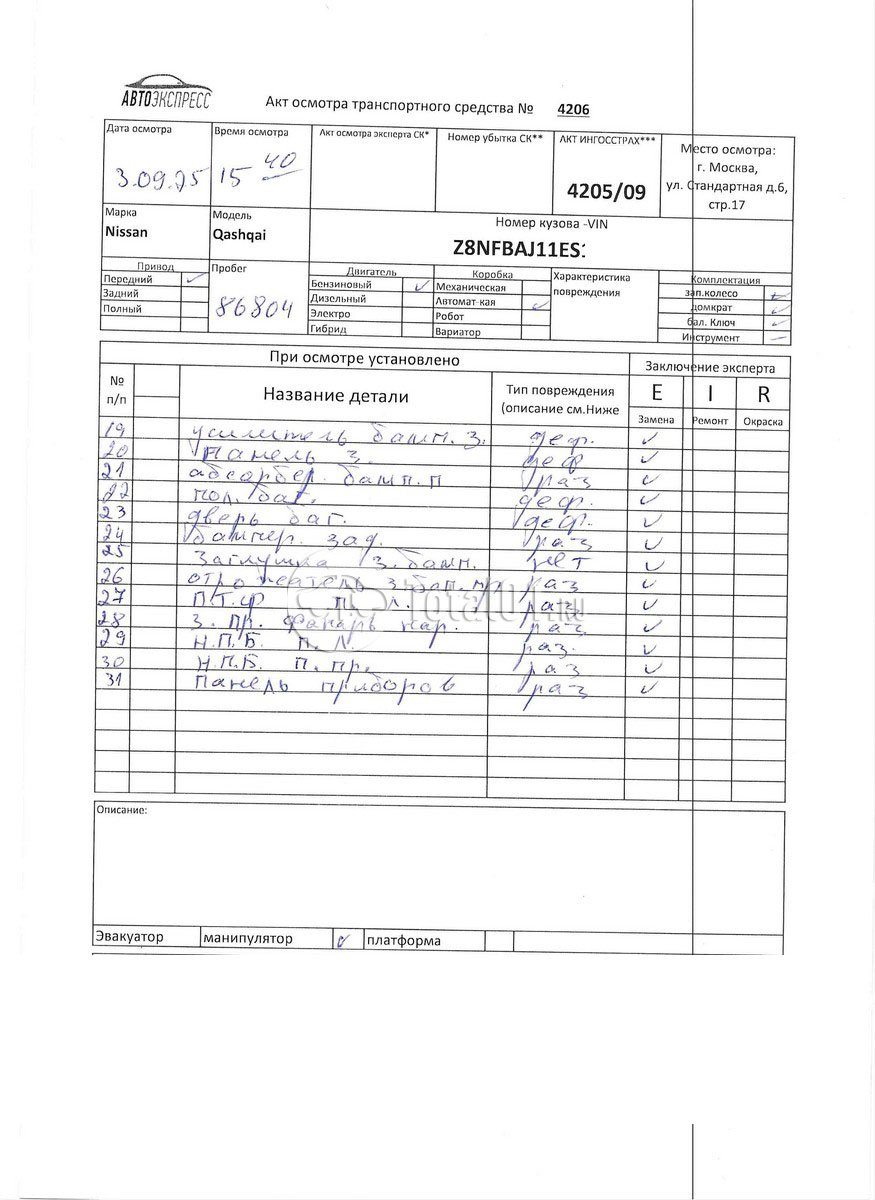 АВТОЭКСПРЕСС
Акт осмотра транспортного средства № 4206
Дата осмотра Время осмотра Акт осмотра эксперта СК* Номер убытка СК** АКТ ИНГОССТРАХ*** Место осмотра:
3.09.25 15 40 4205/09 г. Москва,
ул. Стандартная д.6,
стр.17
Марка Модель Номер кузова -VIN
Nissan Qashqai Z8NFBAJ11ES
Привод Пробег Двигатель Коробка Характеристика Комплектация
Передний Бензиновый Механическая повреждения зап.колесо
Задний 86804 Дизельный Автомат-кая домкрат
Полный Электро Робот бал. Ключ
Гибрид Вариатор Инструмент
При осмотре установлено Заключение эксперта
№ Название детали Тип повреждения E I R
п/п (описание см.Ниже Замена Ремонт Окраска
19 усилитель бамп. з. деф.
20 панель з. деф
21 абсорбер. бамп. п раз
22 пол. баг. деф.
23 дверь баг. деф.
24 бампер. зад. раз
25 Заглушка з. бамп. нет
26 отрожатель з. бап. раз
27 П.Т.Ф п. л. раз
28 з. пр. фанарь нар. раз
29 Н.П.Б. п. л. раз.
30 Н.П.Б. п. пр. раз
31 Панель приборов раз
Total01.ru
Описание:
Эвакуатор манипулятор платформа